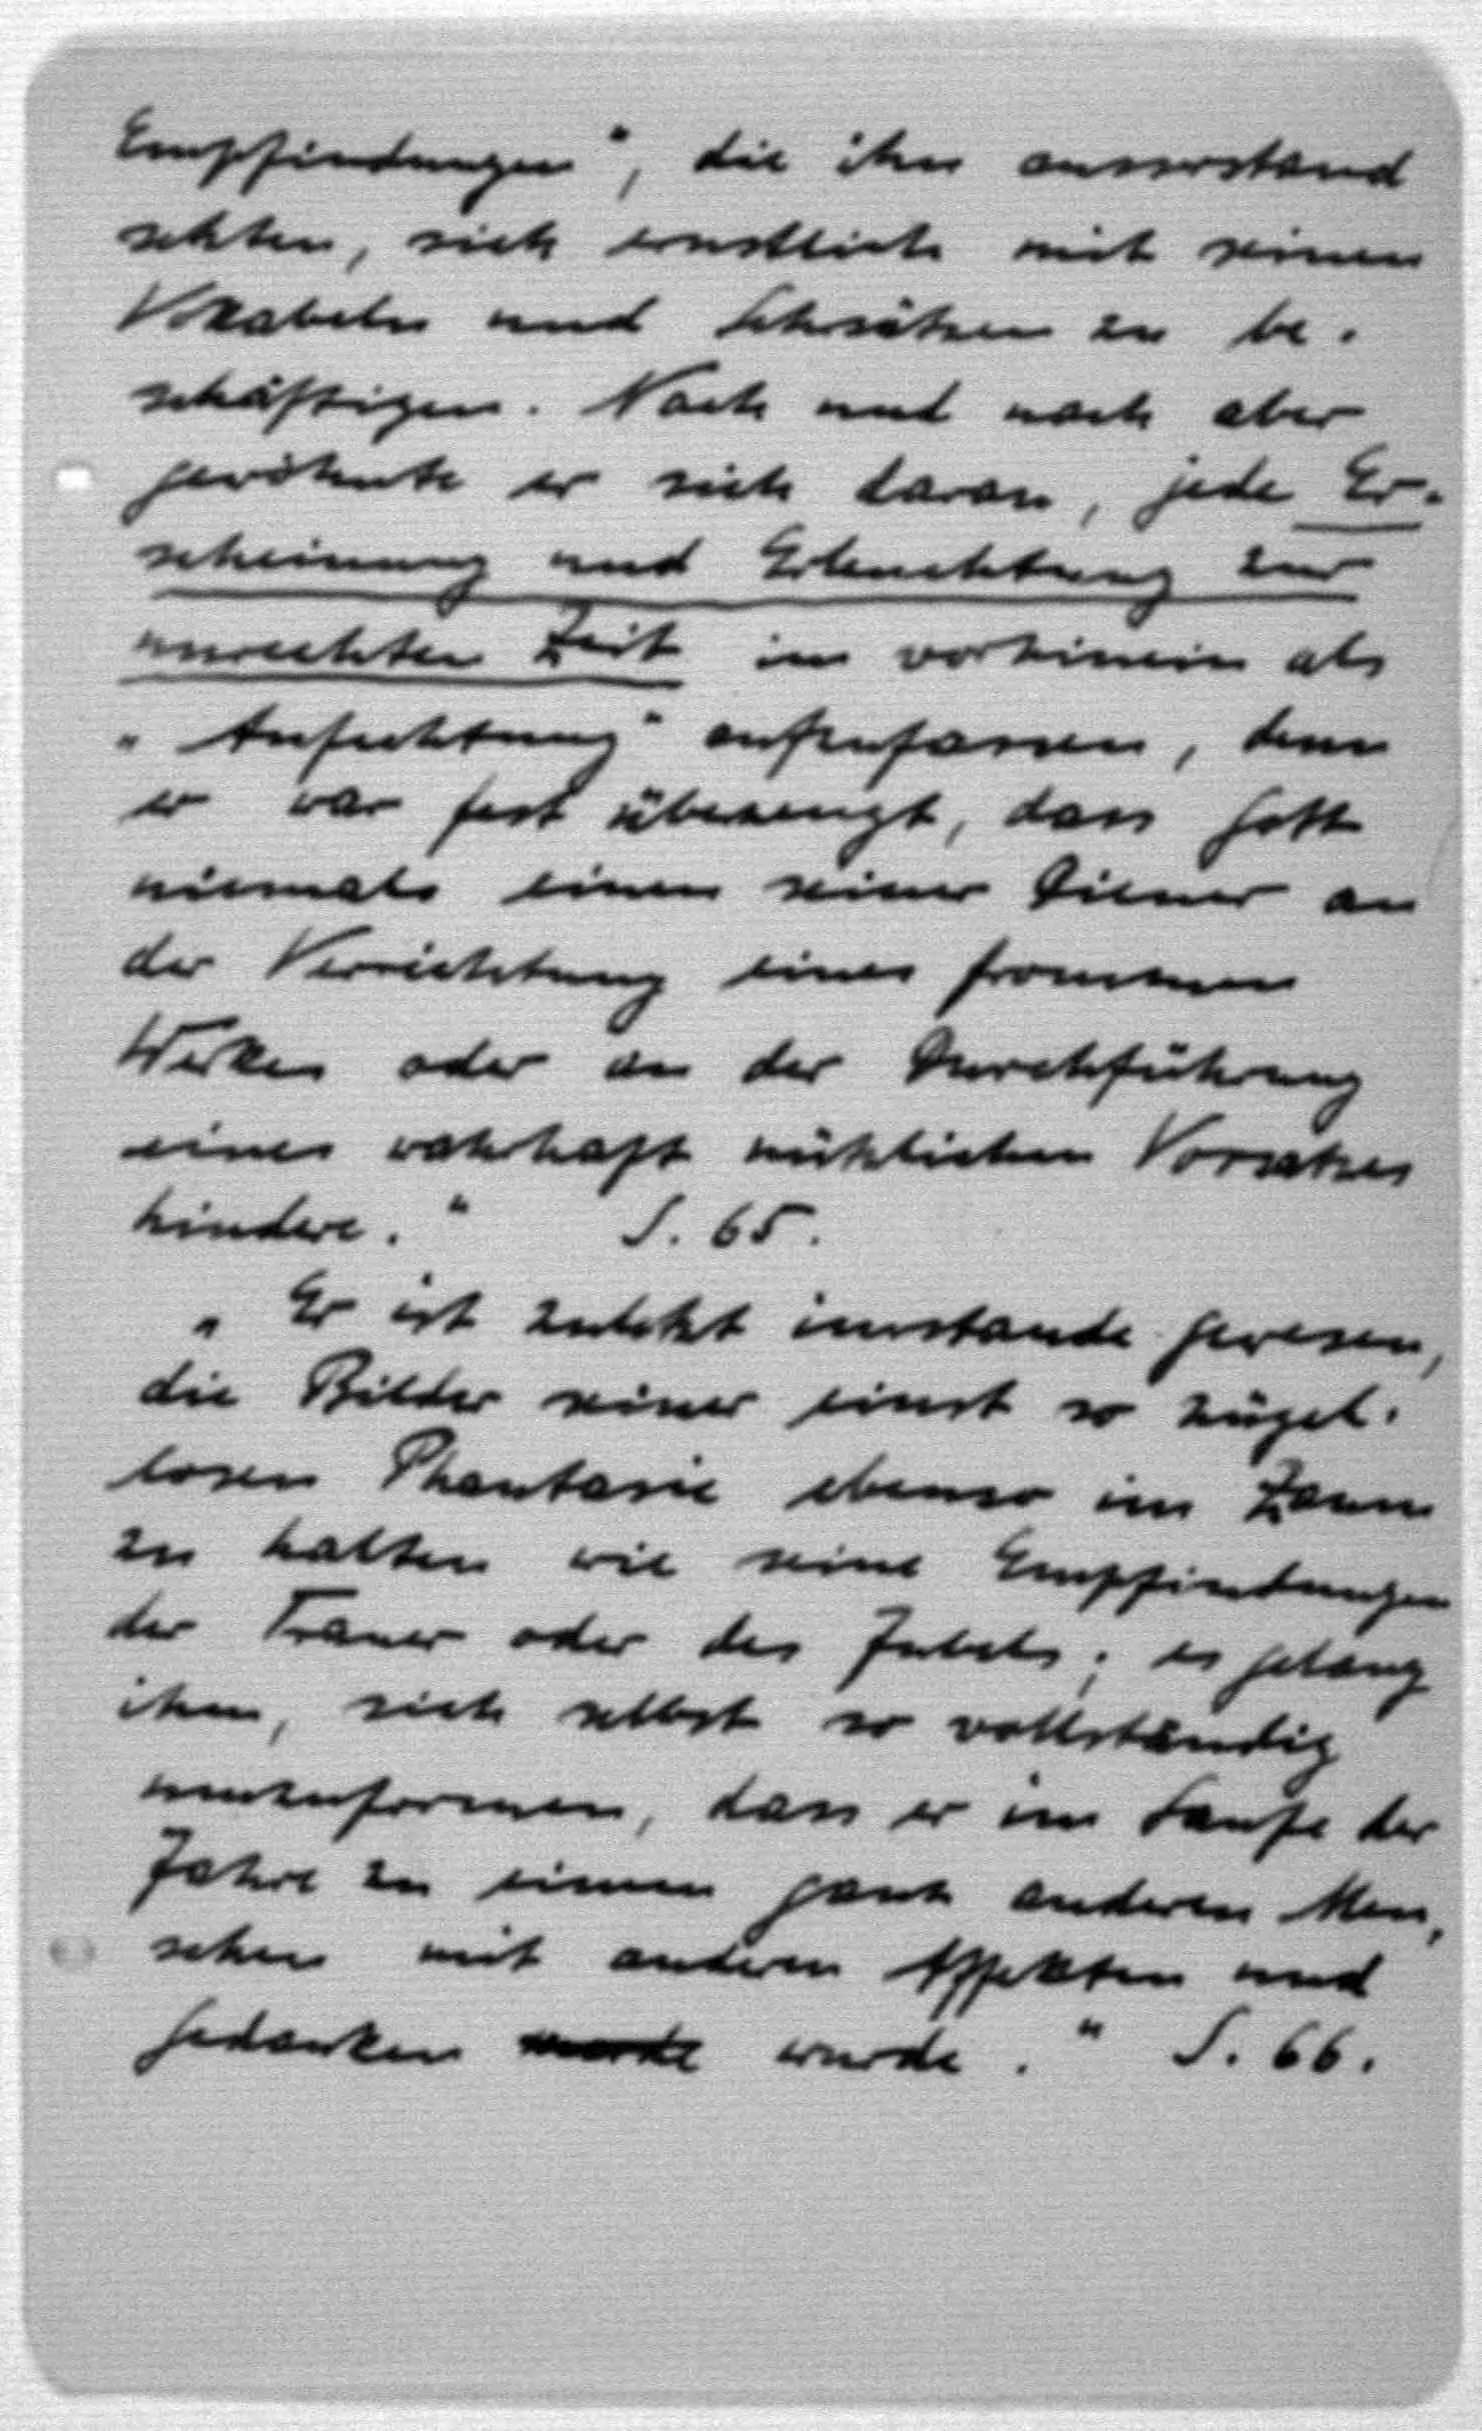 Empfindungen", die ihn ausserstand
setzten, sich ernstlich mit seinen
Vokabeln und Lehrsätzen zu be-
schäftigen. Nach und nach aber
gewöhnte er sich daran, jede Er-
scheinung und Erleuchtung zur
unrechten Zeit im vorhinein als
„Anfechtung" aufzufassen, denn
er war fest überzeugt, dass Gott
niemals einen seiner Diener an
der Verrichtung eines frommen
Werkes oder an der Durchführung
eines wahrhaft nützlichen Vorsatzes
hindere." S. 65.
„Er ist zuletzt imstande gewesen,
die Bilder seiner einst so zügel-
losen Phantasie ebenso im Zaum
zu halten wie seine Empfindungen
der Trauer oder des Jubels; es gelang
ihm, sich selbst so vollständig
umzuformen, dass er im Laufe der
Jahre zu einem ganz anderen Men-
schen mit anderen Affekten und
Gedanken wurde." S. 66.